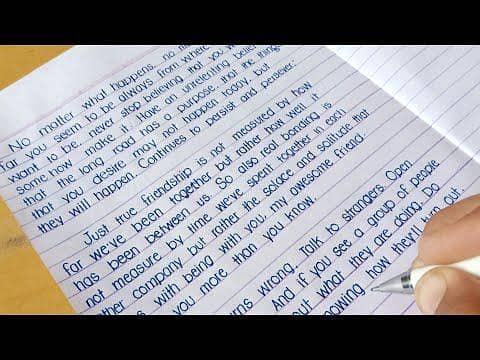 No matter what happens, no
far you seem to be always from where
want to be, never stop believing that you w
some how make it. Have an unrelenting belief
that the long road has a purpose, that the things
that you desire may not happen today, but
they will happen. Continues to persist and persever.
Just true friendship is not measured by how
far we've been together but rather how well it
has been between us. So also real bonding is
not measure by time we've spent together in each
ther company but rather the solace and solitude that
s with being with you, my awesome friend.
you more than you know.
rns wrong. Talk to strangers. Open
And if you see a group of people
out what they are doing. Do
nowing how they'll turn out.